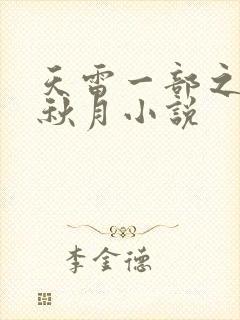 天雷一部之
秋月小説
李金德